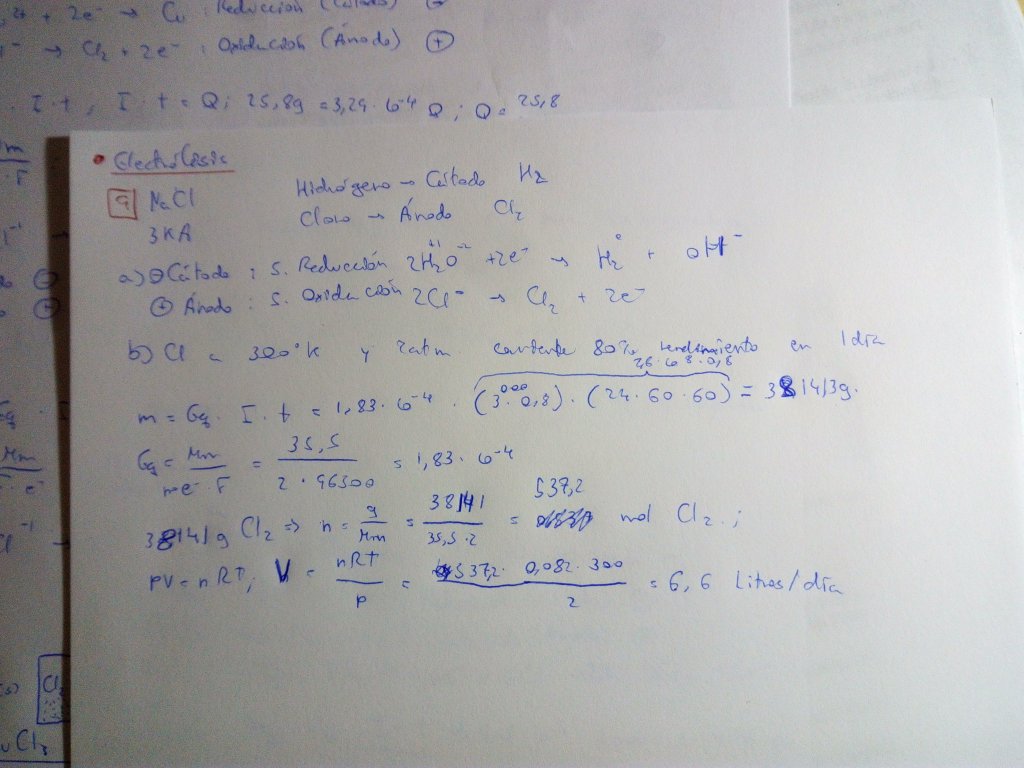 2+ + 2e⁻ → Cu : Reducción (Cátodo) ⊖
→ Cl₂ + 2e⁻ : Oxidación (Ánodo) ⊕
I · t ; I · t = Q ; 25,8g = 3,29 · 10⁻⁴ Q ; Q = 25,8
• Electrólisis
9 NaCl Hidrógeno → Cátodo H₂
3KA Cloro → Ánodo Cl₂
a) ⊖ Cátodo : S. Reducción 2H₂⁺¹O⁻² + 2e⁻ → H₂⁰ + OH⁻
⊕ Ánodo : S. Oxidación 2Cl⁻ → Cl₂ + 2e⁻
b) Cl a 300°K y 2atm corriente 80% rendimiento en 1día
m = Eq · I · t = 1,83 · 10⁻⁴ · (3000 · 0,8) · (24 · 60 · 60) = 38141,3g.
2,6 · 10⁸ · 0,8
Eq = Mm / (ne⁻ · F) = 35,5 / (2 · 96500) = 1,83 · 10⁻⁴
38141g Cl₂ ⇒ n = g / Mm = 38141 / (35,5 · 2) = 537,2 mol Cl₂ ;
PV = nRT ; V = nRT / P = 537,2 · 0,082 · 300 / 2 = 6,6 Litros/día
Cl₂
Cl₃